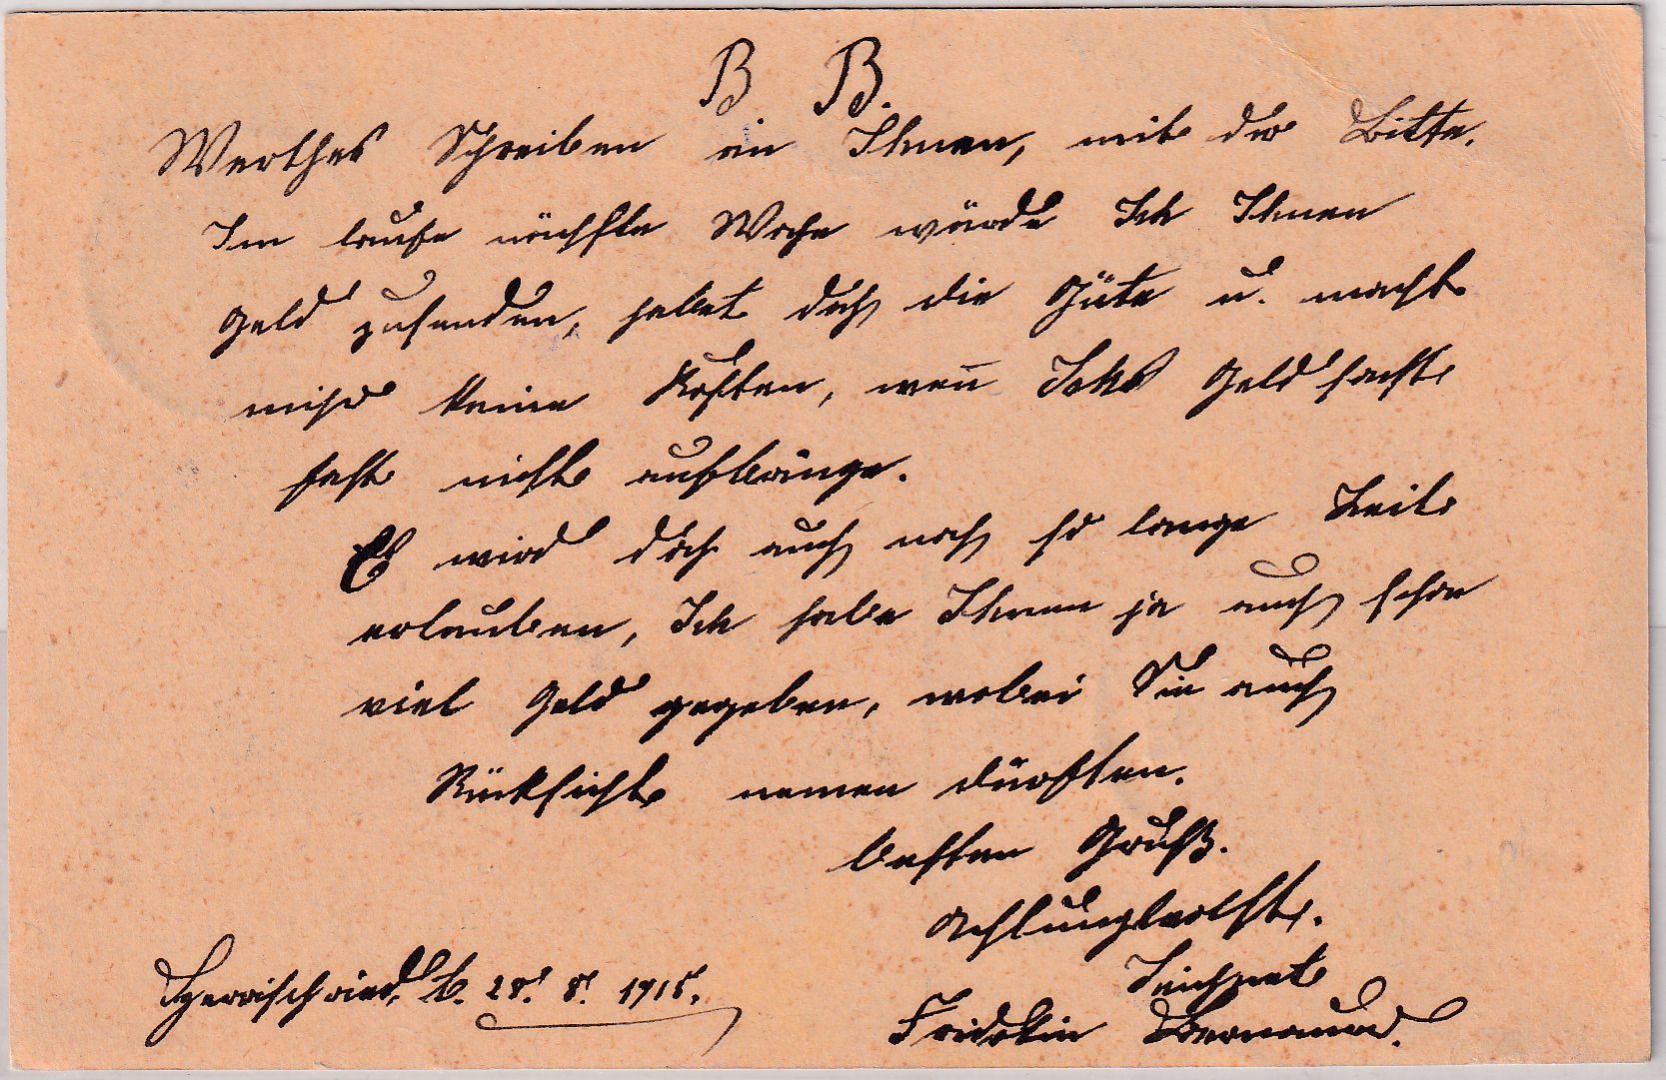 B B.
Werthes Schreiben an Ihnen, mit der Bitte.
Im laufe nächste Woche würde Ich Ihnen
Geld zusenden, habet doch die Güte u. macht
mihr keine Kosten, wen̄ Ichs Geld
fast nicht aufbringe.
Es wird doch auch noch so lange Zeit
erlauben, Ich habe Ihnen ja auch schon
viel Geld gegeben, wobei Sie auch
Rücksicht nemen dürften.
besten Gruß.
Achtungsvollst.
Zeichnet
Herrischried, 1915.
Fridolin